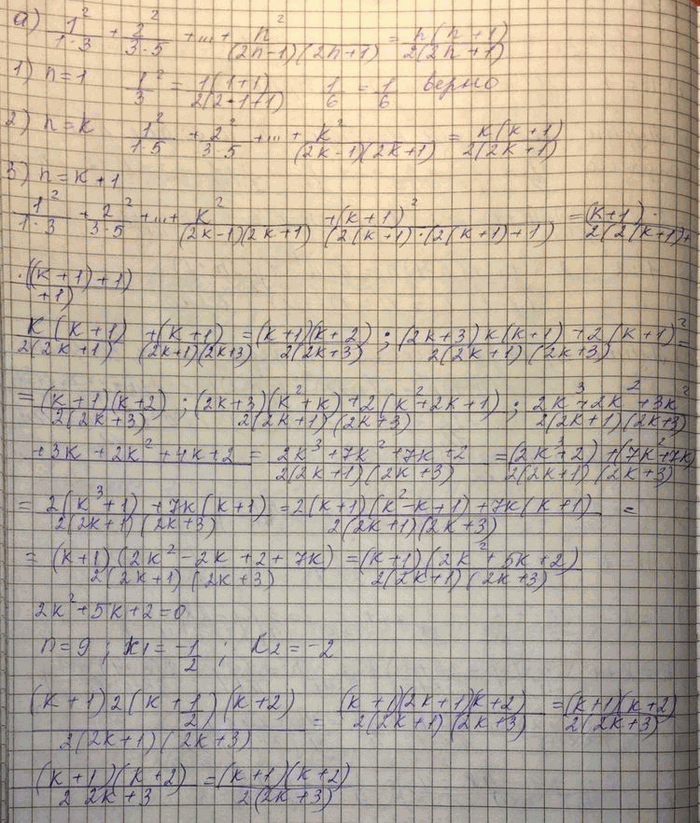 а) 1²/(1·3) + 2²/(3·5) + ... + n²/((2n-1)(2n+1)) = n(n+1)/(2(2n+1))
1) n=1   1²/3 = 1(1+1)/(2(2·1+1))   1/6 = 1/6 верно
2) n=k   1²/(1·5) + 2²/(3·5) + ... + k²/((2k-1)(2k+1)) = k(k+1)/(2(2k+1))
3) n=k+1
1²/(1·3) + 2²/(3·5) + ... + k²/((2k-1)(2k+1)) + (k+1)²/(2(k+1)·(2(k+1)+1)) = (k+1)·/(2(2(k+1)+
·((k+1)+1)/+1)
k(k+1)/(2(2k+1)) + (k+1)/((2k+1)(2k+3)) = (k+1)(k+2)/(2(2k+3)) ; ((2k+3)k(k+1)+2(k+1)²)/(2(2k+1)(2k+3)) =
= (k+1)(k+2)/(2(2k+3)) ; ((2k+3)(k²+k)+2(k²+2k+1))/(2(2k+1)(2k+3)) ; 2k³+2k²+3k²/(2(2k+1)(2k+3))
+3k+2k²+4k+2 = (2k³+7k²+7k+2)/(2(2k+1)(2k+3)) = ((2k³+2)+(7k²+7k)/(2(2k+1)(2k+3))
= (2(k³+1)+7k(k+1))/(2(2k+1)(2k+3)) = (2(k+1)(k²-k+1)+7k(k+1))/(2(2k+1)(2k+3)) =
= (k+1)(2k²-2k+2+7k)/(2(2k+1)(2k+3)) = (k+1)(2k²+5k+2)/(2(2k+1)(2k+3))
2k²+5k+2=0
n=9 ; k1=-1/2 ; k2=-2
(k+1)2(k+1/2)(k+2)/(2(2k+1)(2k+3)) = (k+1)(2k+1)(k+2)/(2(2k+1)(2k+3)) = (k+1)(k+2)/(2(2k+3))
(k+1)(k+2)/(2 2k+3) = (k+1)(k+2)/(2(2k+3))